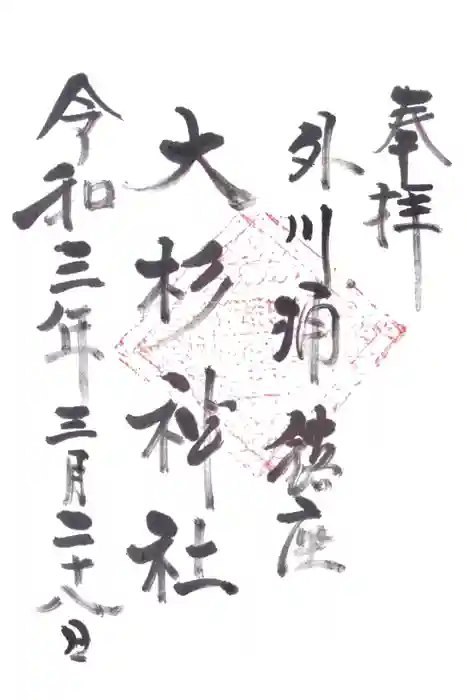 奉拝
外川浦 鎮座
大杉神社
令和三年三月二十八日